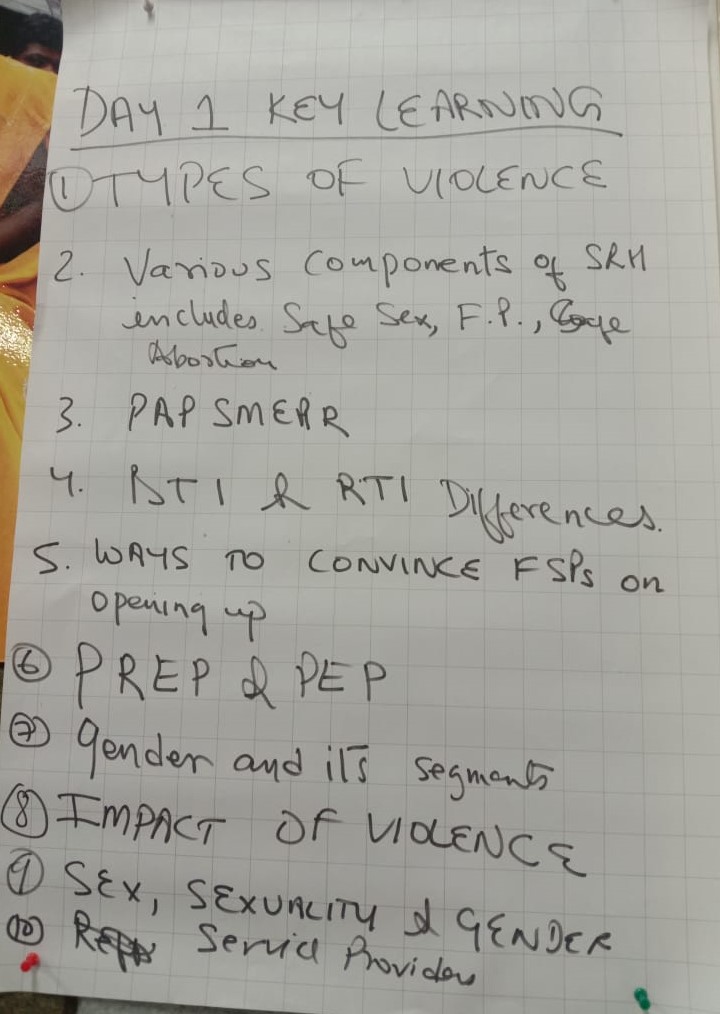 DAY 1 KEY LEARNING
① TYPES OF VIOLENCE
2. Various Components of SRH
includes Safe Sex, F.P.,
Abortion
3. PAP SMEAR
4. STI & RTI Differences.
5. WAYS TO CONVINCE FSPs on
opening up
⑥ PREP & PEP
⑦ Gender and its segments
⑧ IMPACT OF VIOLENCE
⑨ SEX, SEXUALITY & GENDER
⑩ Service Provider